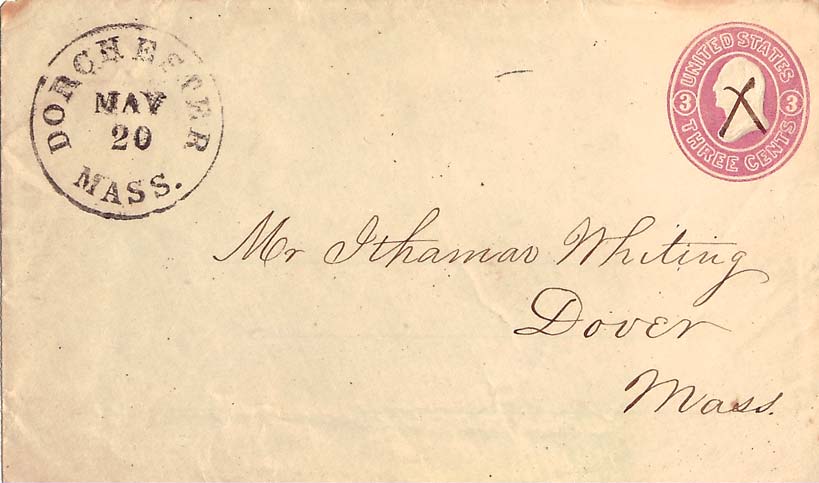 DORCHESTER
MAY
20
MASS.
UNITED STATES
3 3
THREE CENTS
X
Mr Ithamar Whiting
Dover
Mass.